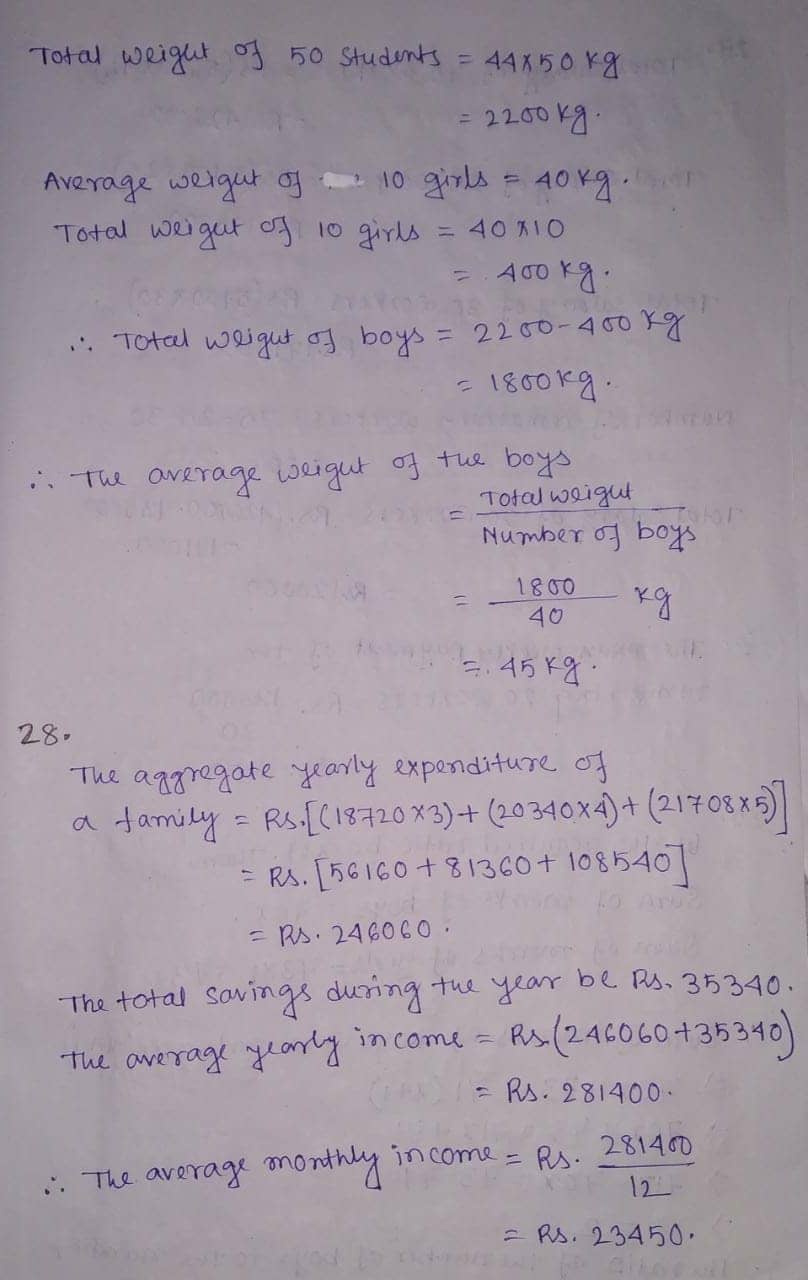 Total weight of 50 students = 44x50 kg
= 2200 kg.
Average weight of 10 girls = 40 kg.
Total weight of 10 girls = 40x10
= 400 kg.
∴ Total weight of boys = 2200-400 kg
= 1800 kg.
∴ The average weight of the boys
= Total weight
Number of boys
= 1800 kg
40
= 45 kg.
28.
The aggregate yearly expenditure of
a family = Rs.[(18720x3)+(20340x4)+(21708x5)]
= Rs.[56160+81360+108540]
= Rs. 246060.
The total savings during the year be Rs. 35340.
The average yearly income = Rs.(246060+35340)
= Rs. 281400.
∴ The average monthly income = Rs. 281400
12
= Rs. 23450.